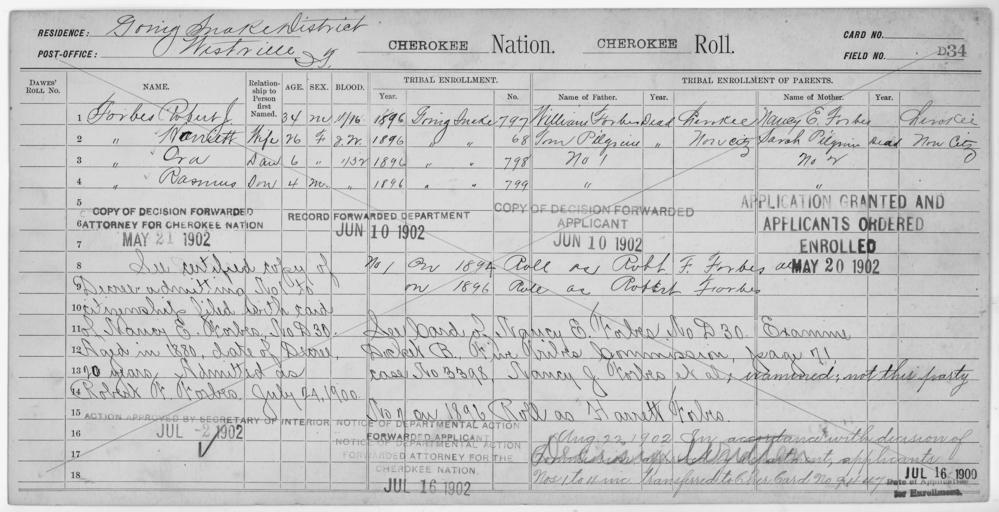 RESIDENCE: Going Snake District
POST-OFFICE: Westville I.T.
CHEROKEE Nation. CHEROKEE Roll.
CARD NO.
FIELD NO. D34
DAWES' ROLL NO. NAME. Relationship to Person first Named. AGE. SEX. BLOOD. TRIBAL ENROLLMENT. Year. No. TRIBAL ENROLLMENT OF PARENTS. Name of Father. Year. Name of Mother. Year.
1 Forbes Robert J. 34 M 11/16 1896 Going Snake 797 William Forbes Dead Cherokee Nancy E. Forbes Cherokee
2 " Harriett Wife 26 F I.W. 1896 " " 68 Tom Pilgrim " Non citz Sarah Pilgrim Dead Non Citz
3 " Ora Dau 6 " 11/32 1896 " " 798 No 1 No 2
4 " Rasmus Son 4 M. " 1896 " " 799 " "
5
6
7
COPY OF DECISION FORWARDED
ATTORNEY FOR CHEROKEE NATION
MAY 21 1902
RECORD FORWARDED DEPARTMENT
JUN 10 1902
COPY OF DECISION FORWARDED
APPLICANT
JUN 10 1902
APPLICATION GRANTED AND
APPLICANTS ORDERED
ENROLLED
MAY 20 1902
8 See certified copy of No 1 on 1894 Roll as Robt F. Forbes
9 Decree admitting No 1 to on 1896 Roll as Robert Forbes
10 citizenship filed with card
11 of Nancy E. Forbes, No D 30. See Card of Nancy E Forbes No D 30. Examine
12 Aged in 1880, date of Decree, Docket B. Five Tribes Commission, page 71,
13 20 years. Admitted as case No 3398, Nancy J Forbes et al; examined; not this party
14 Robert F. Forbes. July 24, 1900.
15 No 2 on 1896 Roll as Harrett Forbes
ACTION APPROVED BY SECRETARY OF INTERIOR.
JUL -2 1902
NOTICE OF DEPARTMENTAL ACTION
FORWARDED APPLICANT
NOTICE OF DEPARTMENTAL ACTION
FORWARDED ATTORNEY FOR THE
CHEROKEE NATION.
JUL 16 1902
16 Aug. 22, 1902 In accordance with decision of
17 applicants
18 Nos 1 to 4 inc. transferred to Cher Card No
JUL 16 1900
Date of Application
for Enrollment.